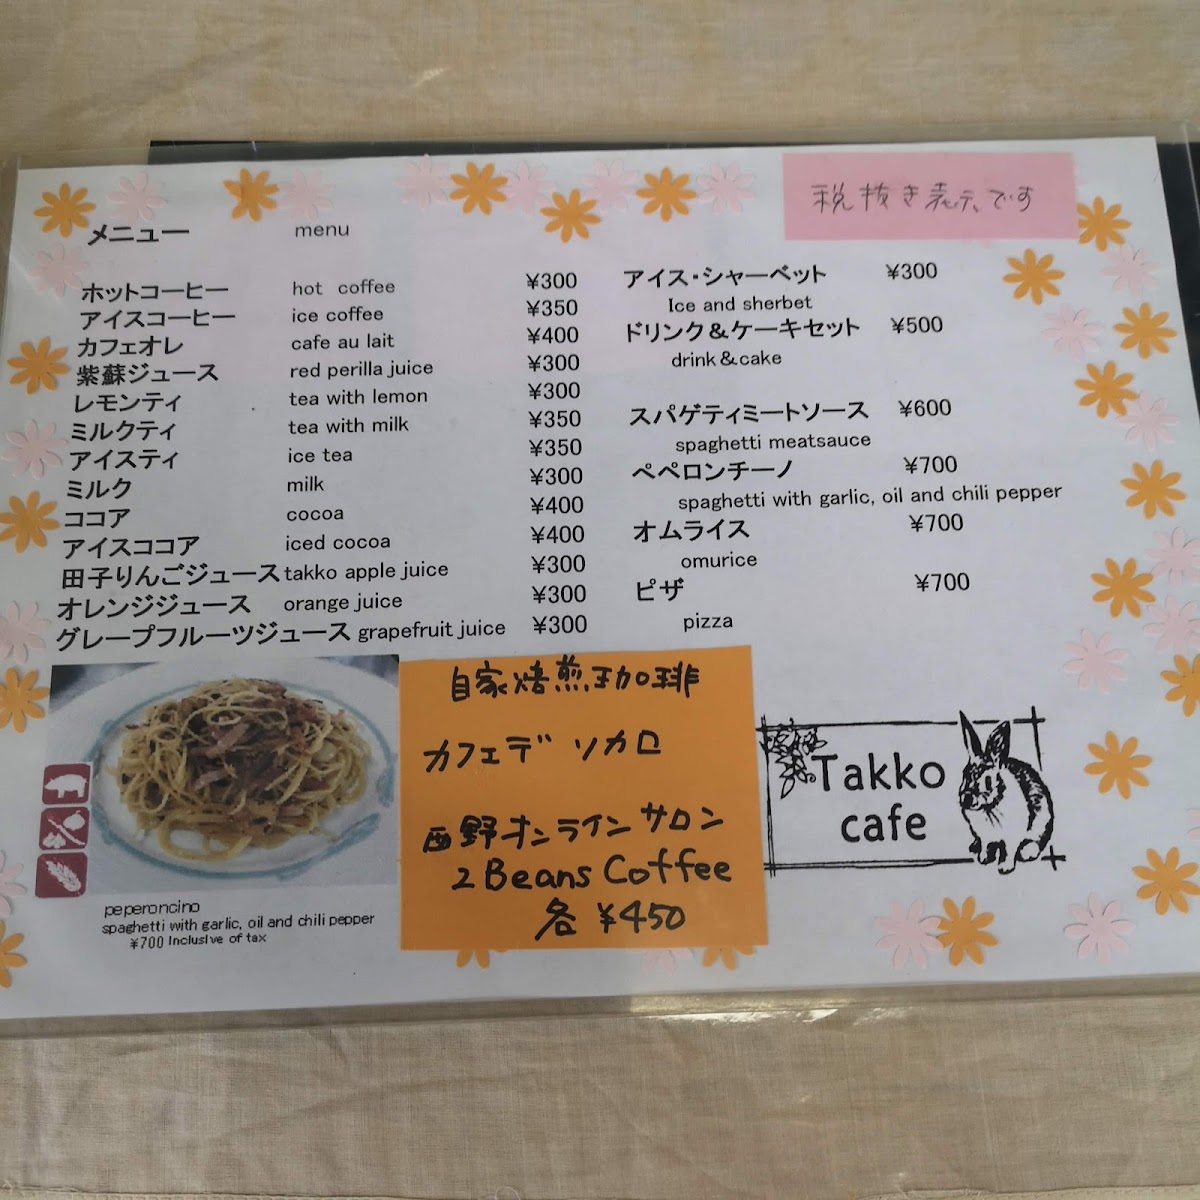 税抜き表示です
メニュー menu
ホットコーヒー hot coffee ¥300
アイスコーヒー ice coffee ¥350
カフェオレ cafe au lait ¥400
紫蘇ジュース red perilla juice ¥300
レモンティ tea with lemon ¥300
ミルクティ tea with milk ¥350
アイスティ ice tea ¥350
ミルク milk ¥300
ココア cocoa ¥400
アイスココア iced cocoa ¥400
田子りんごジュース takko apple juice ¥300
オレンジジュース orange juice ¥300
グレープフルーツジュース grapefruit juice ¥300
アイス・シャーベット ¥300
Ice and sherbet
ドリンク&ケーキセット ¥500
drink&cake
スパゲティミートソース ¥600
spaghetti meatsauce
ペペロンチーノ ¥700
spaghetti with garlic, oil and chili pepper
オムライス ¥700
omurice
ピザ ¥700
pizza
peperoncino
spaghetti with garlic, oil and chili pepper
¥700 Inclusive of tax
自家焙煎珈琲
カフェデ ソカロ
西野オンラインサロン
2 Beans Coffee
各 ¥450
Takko
cafe